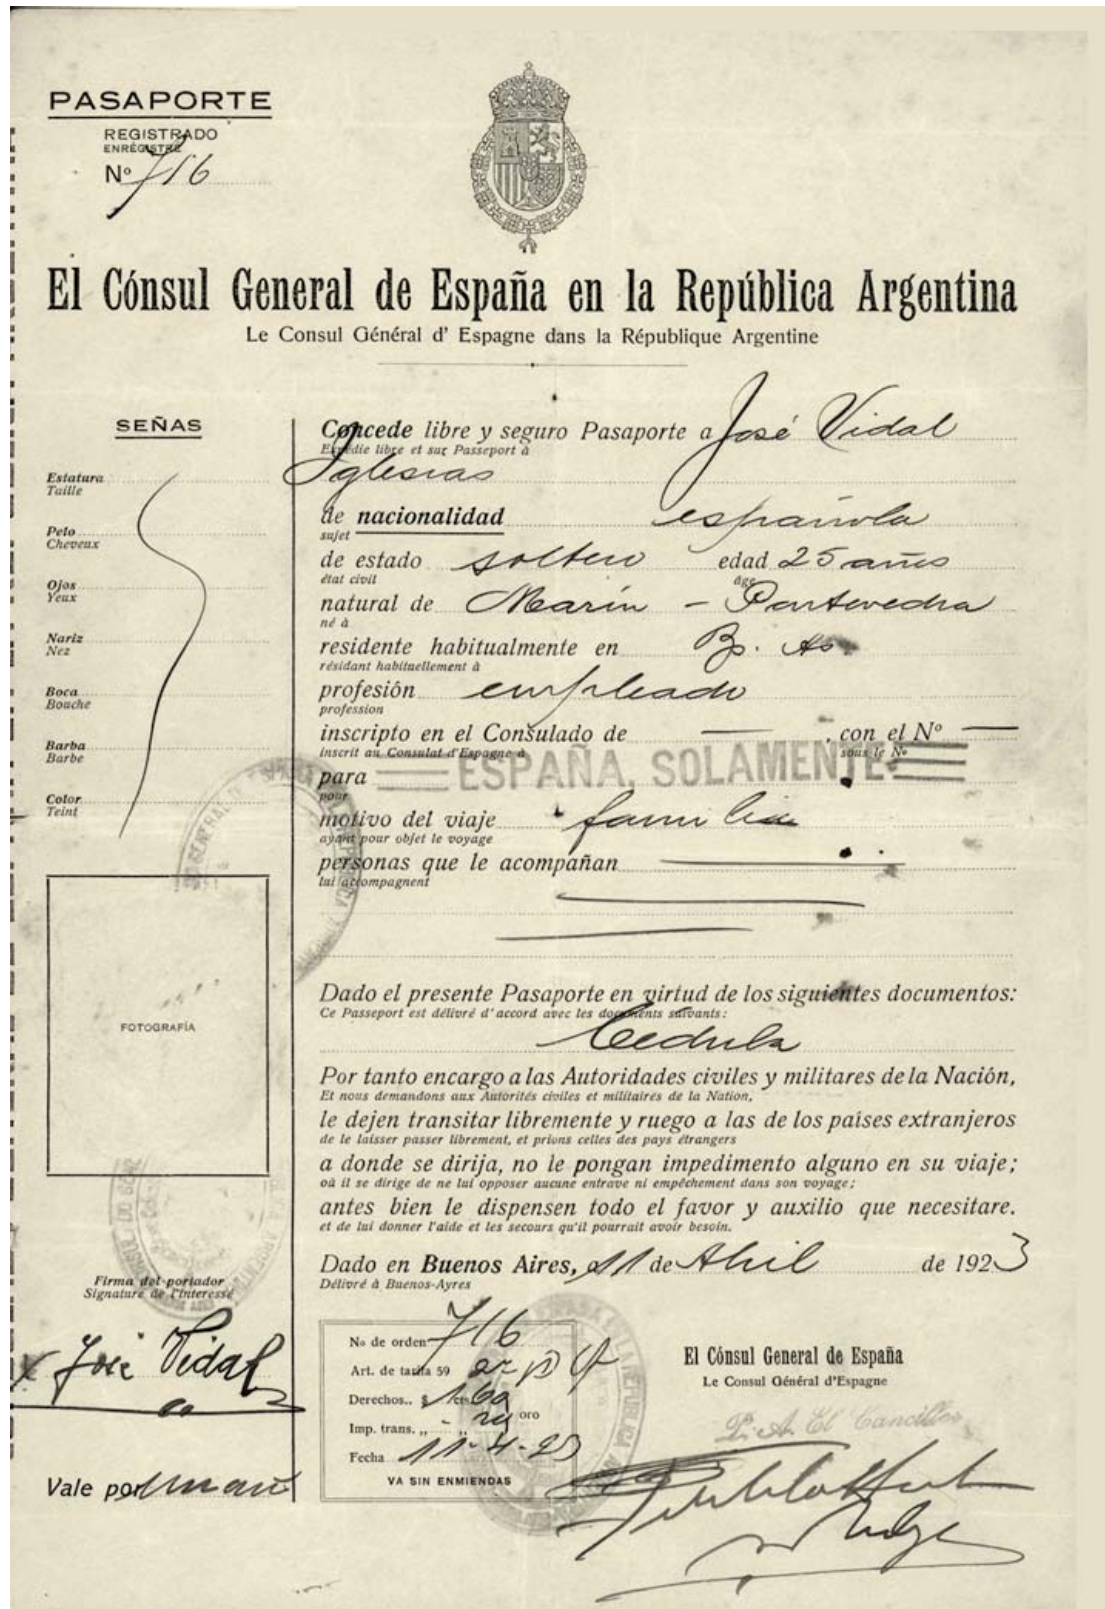 PASAPORTE
REGISTRADO
ENRÉGISTRÉ
Nº 716
El Cónsul General de España en la República Argentina
Le Consul Général d' Espagne dans la République Argentine
SEÑAS
Estatura
Taille
Pelo
Cheveux
Ojos
Yeux
Nariz
Nez
Boca
Bouche
Barba
Barbe
Color
Teint
FOTOGRAFÍA
Firma del portador
Signature de l'interessé
José Vidal
Vale por un año
Concede libre y seguro Pasaporte a José Vidal
Expédie libre et sur Passeport à
Iglesias
de nacionalidad española
sujet
de estado soltero edad 25 años
état civil âge
natural de Marín - Pontevedra
né à
residente habitualmente en Bs. As
résidant habituellement à
profesión empleado
profession
inscripto en el Consulado de , con el Nº
inscrit au Consulat d'Espagne à sous le Nº
para ESPAÑA, SOLAMENTE
pour
motivo del viaje familia
ayant pour objet le voyage
personas que le acompañan
lui accompagnent
Dado el presente Pasaporte en virtud de los siguientes documentos:
Ce Passeport est délivré d'accord avec les documents suivants:
Cedula
Por tanto encargo a las Autoridades civiles y militares de la Nación,
Et nous demandons aux Autorités civiles et militaires de la Nation,
le dejen transitar libremente y ruego a las de los países extranjeros
de le laisser passer librement, et prions celles des pays étrangers
a donde se dirija, no le pongan impedimento alguno en su viaje;
où il se dirige de ne lui opposer aucune entrave ni empêchement dans son voyage;
antes bien le dispensen todo el favor y auxilio que necesitare.
et de lui donner l'aide et les secours qu'il pourrait avoir besoin.
Dado en Buenos Aires, a 11 de Abril de 1923
Délivré à Buenos-Ayres
No de orden 716
Art. de tarifa 59
Derechos.. $
Imp. trans. ,, ,, oro
Fecha 11-4-23
VA SIN ENMIENDAS
El Cónsul General de España
Le Consul Général d'Espagne
P. A. El Canciller